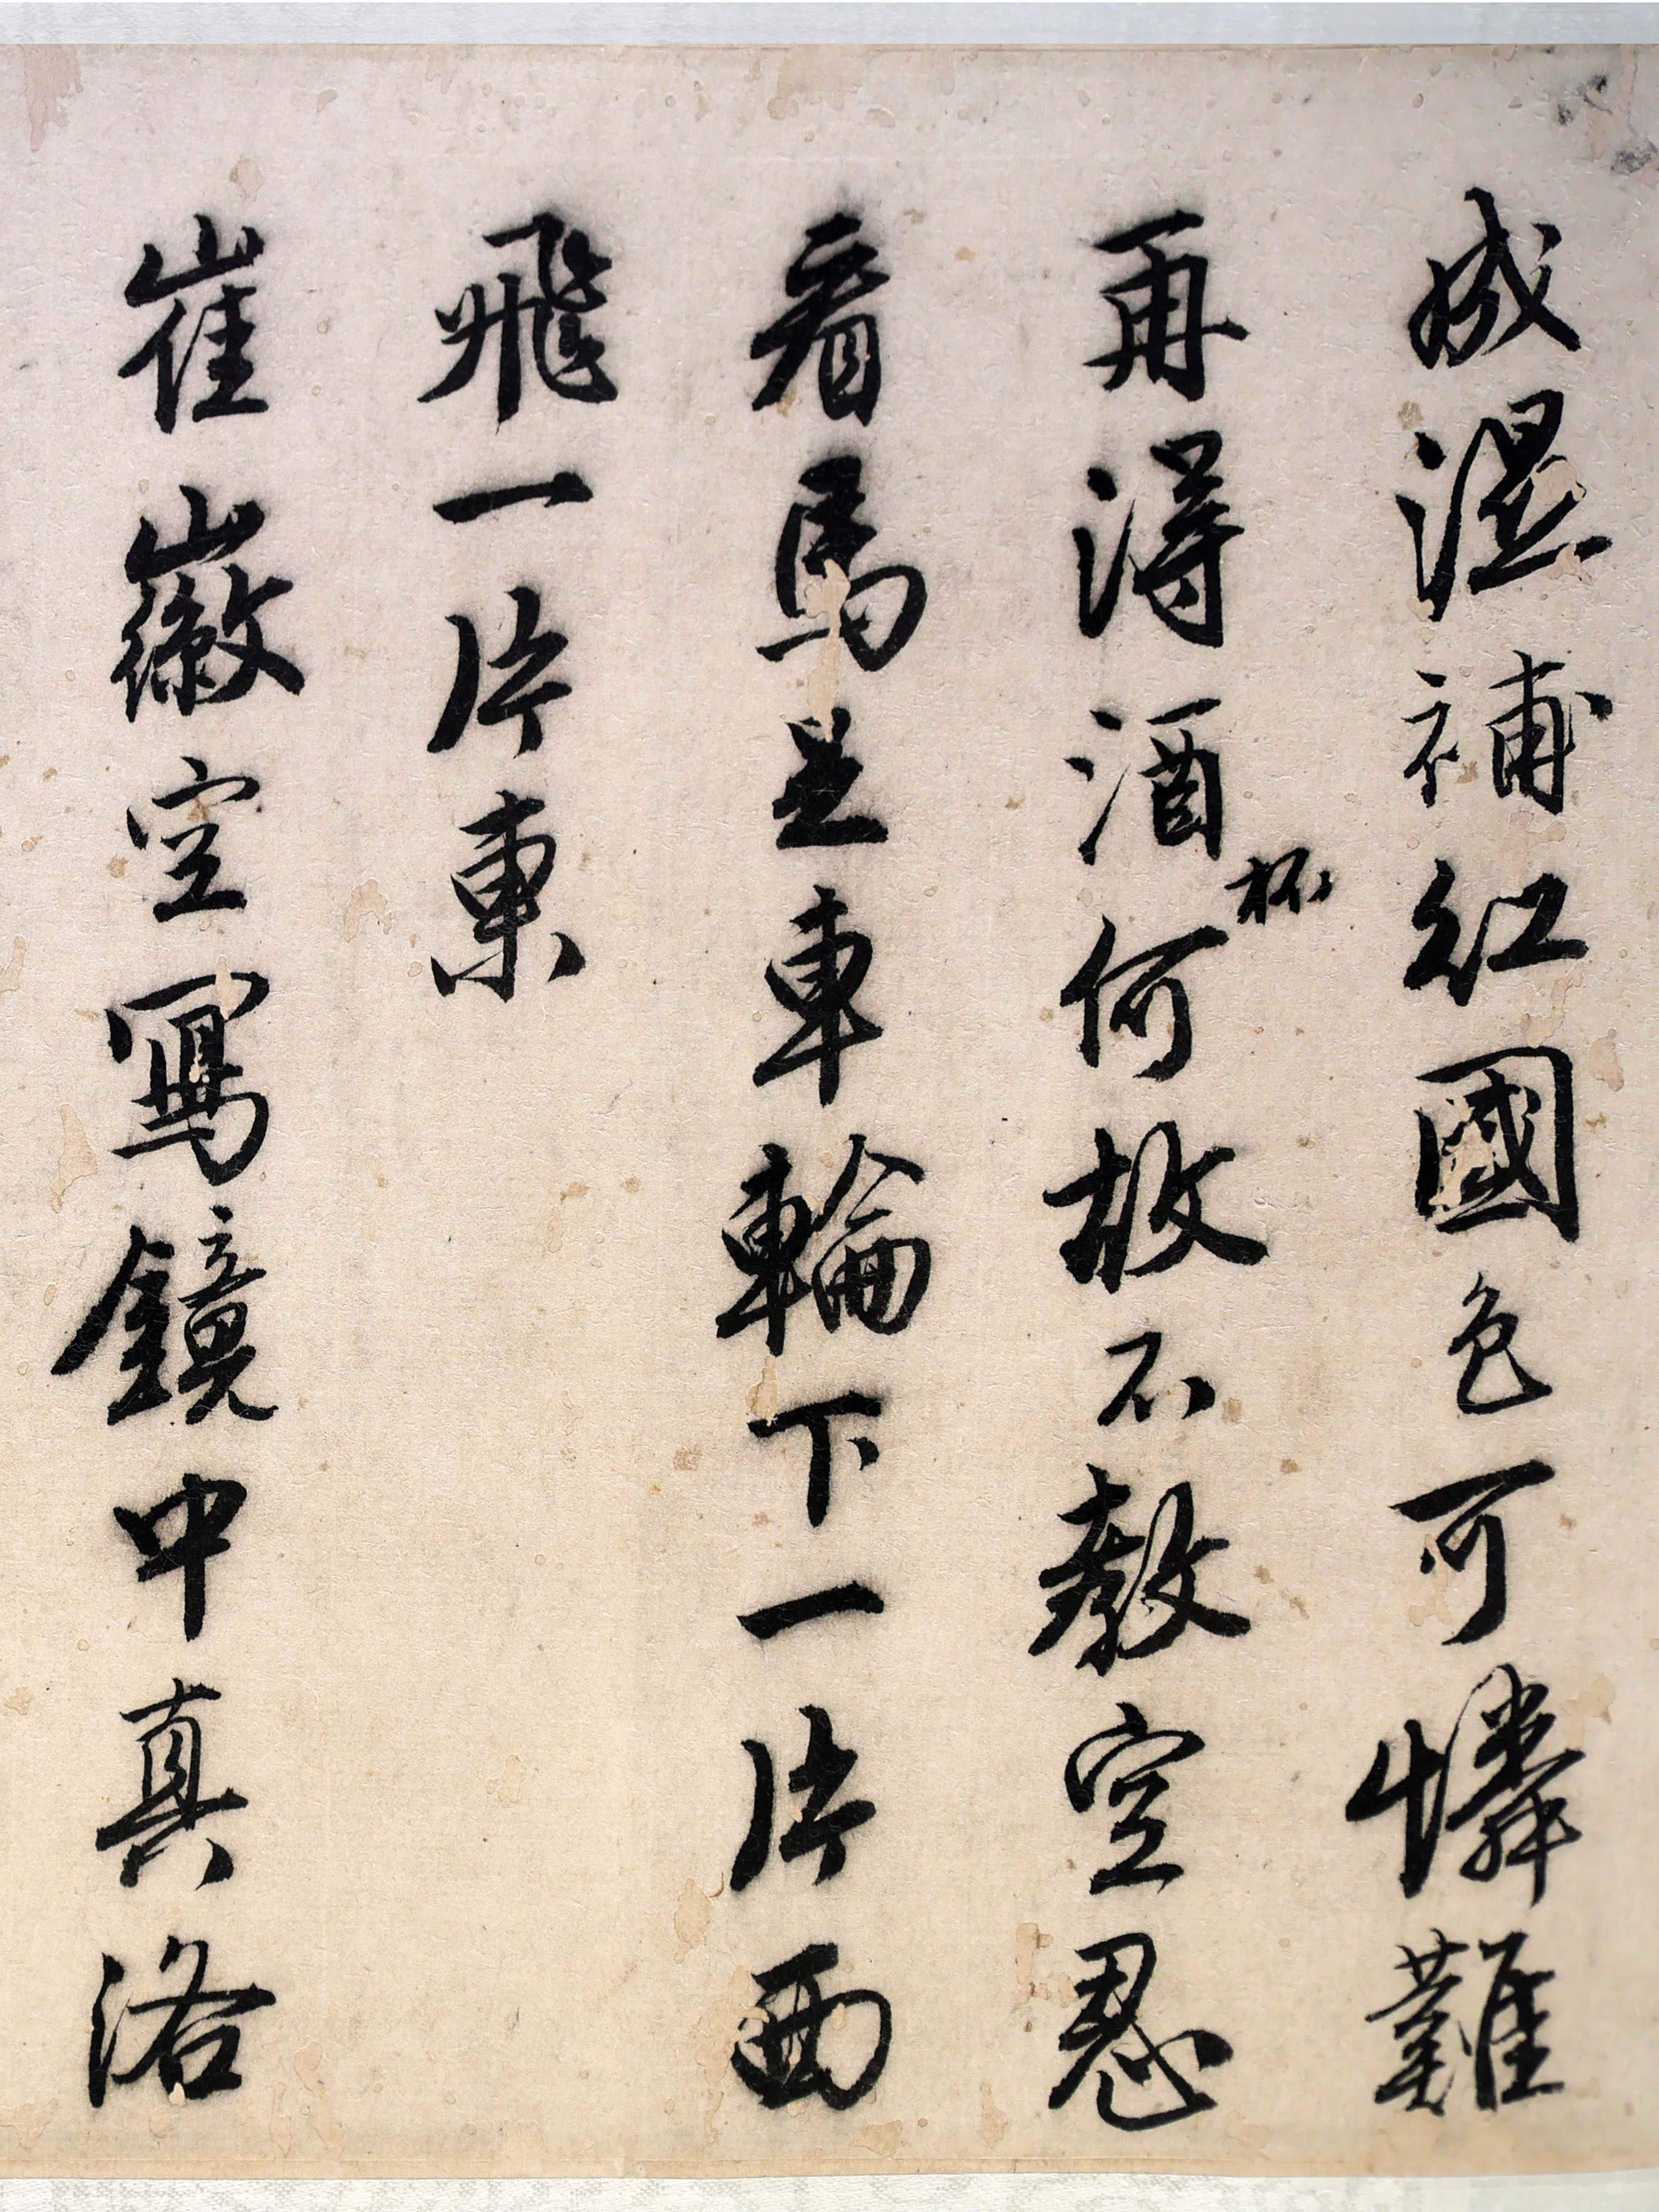 成濕補紅國色可憐難
再得酒杯何故不教空忍
看馬足車輪下一片西
飛一片東
崔徽空寫鏡中真洛